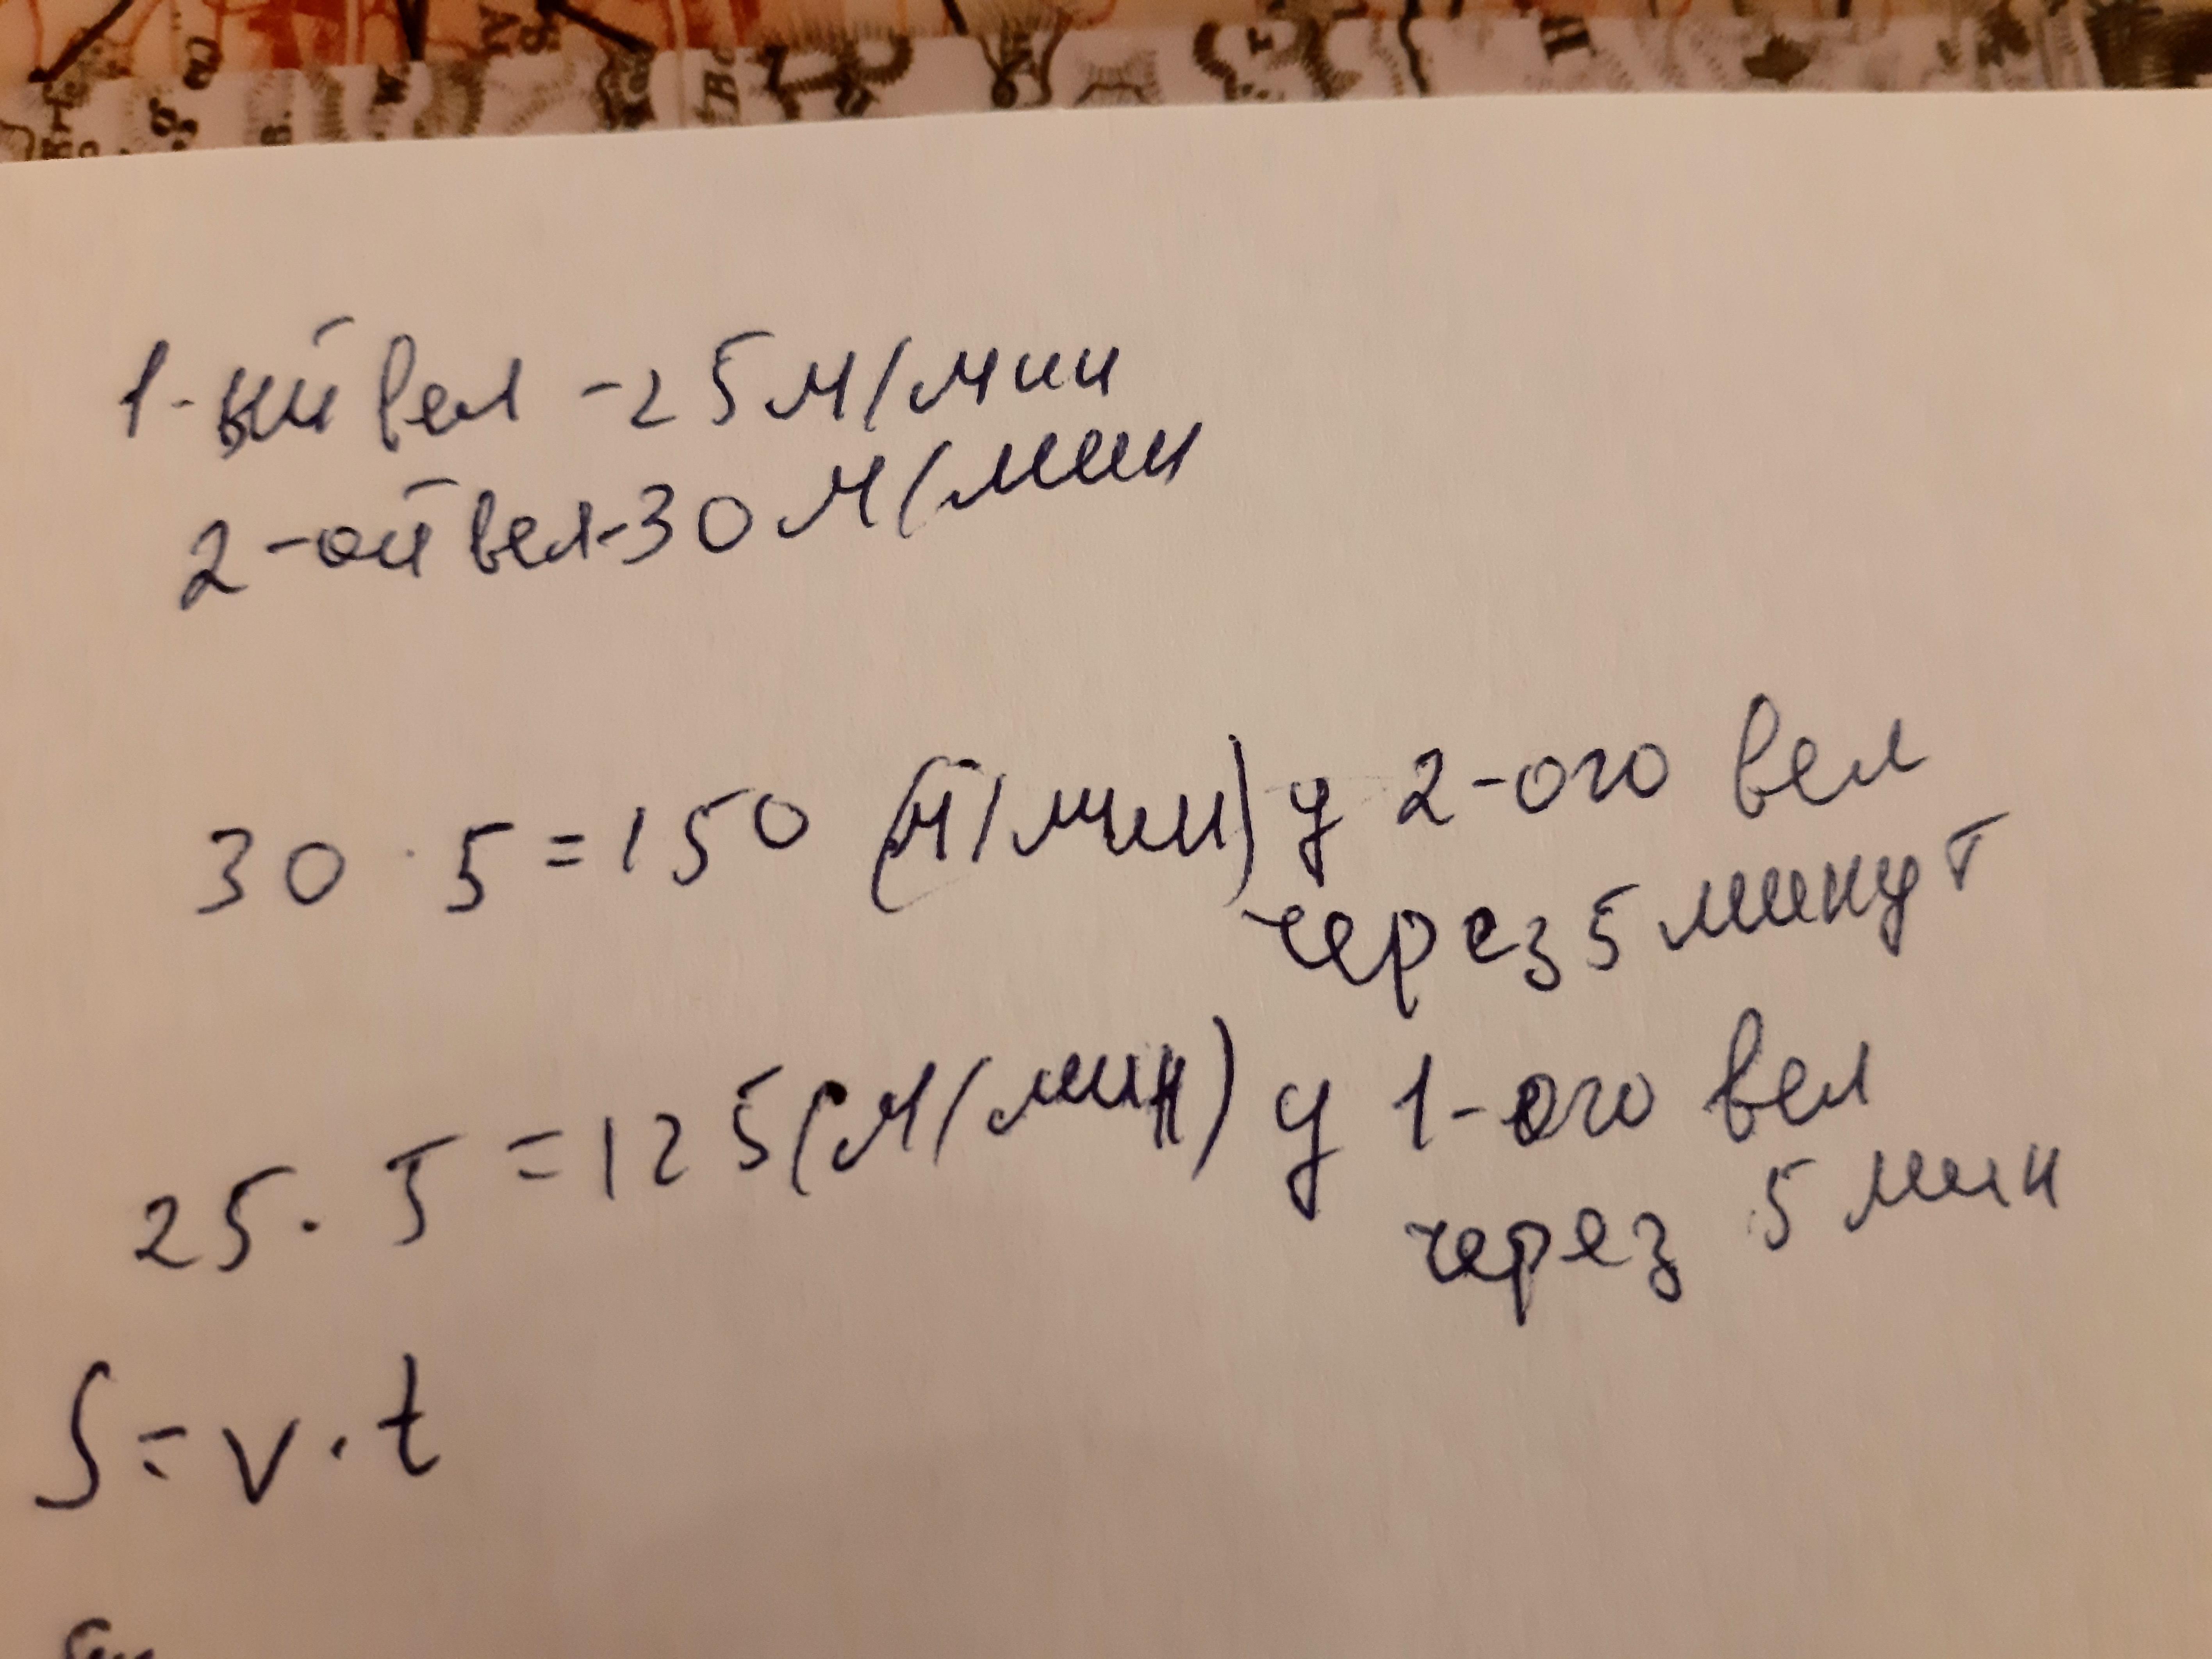 1-ый вел - 25 м/мин
2-ой вел - 30 м/мин
30 · 5 = 150 (м/мин) у 2-ого вел
через 5 минут
25 · 5 = 125 (м/мин) у 1-ого вел
через 5 мин
S = v · t